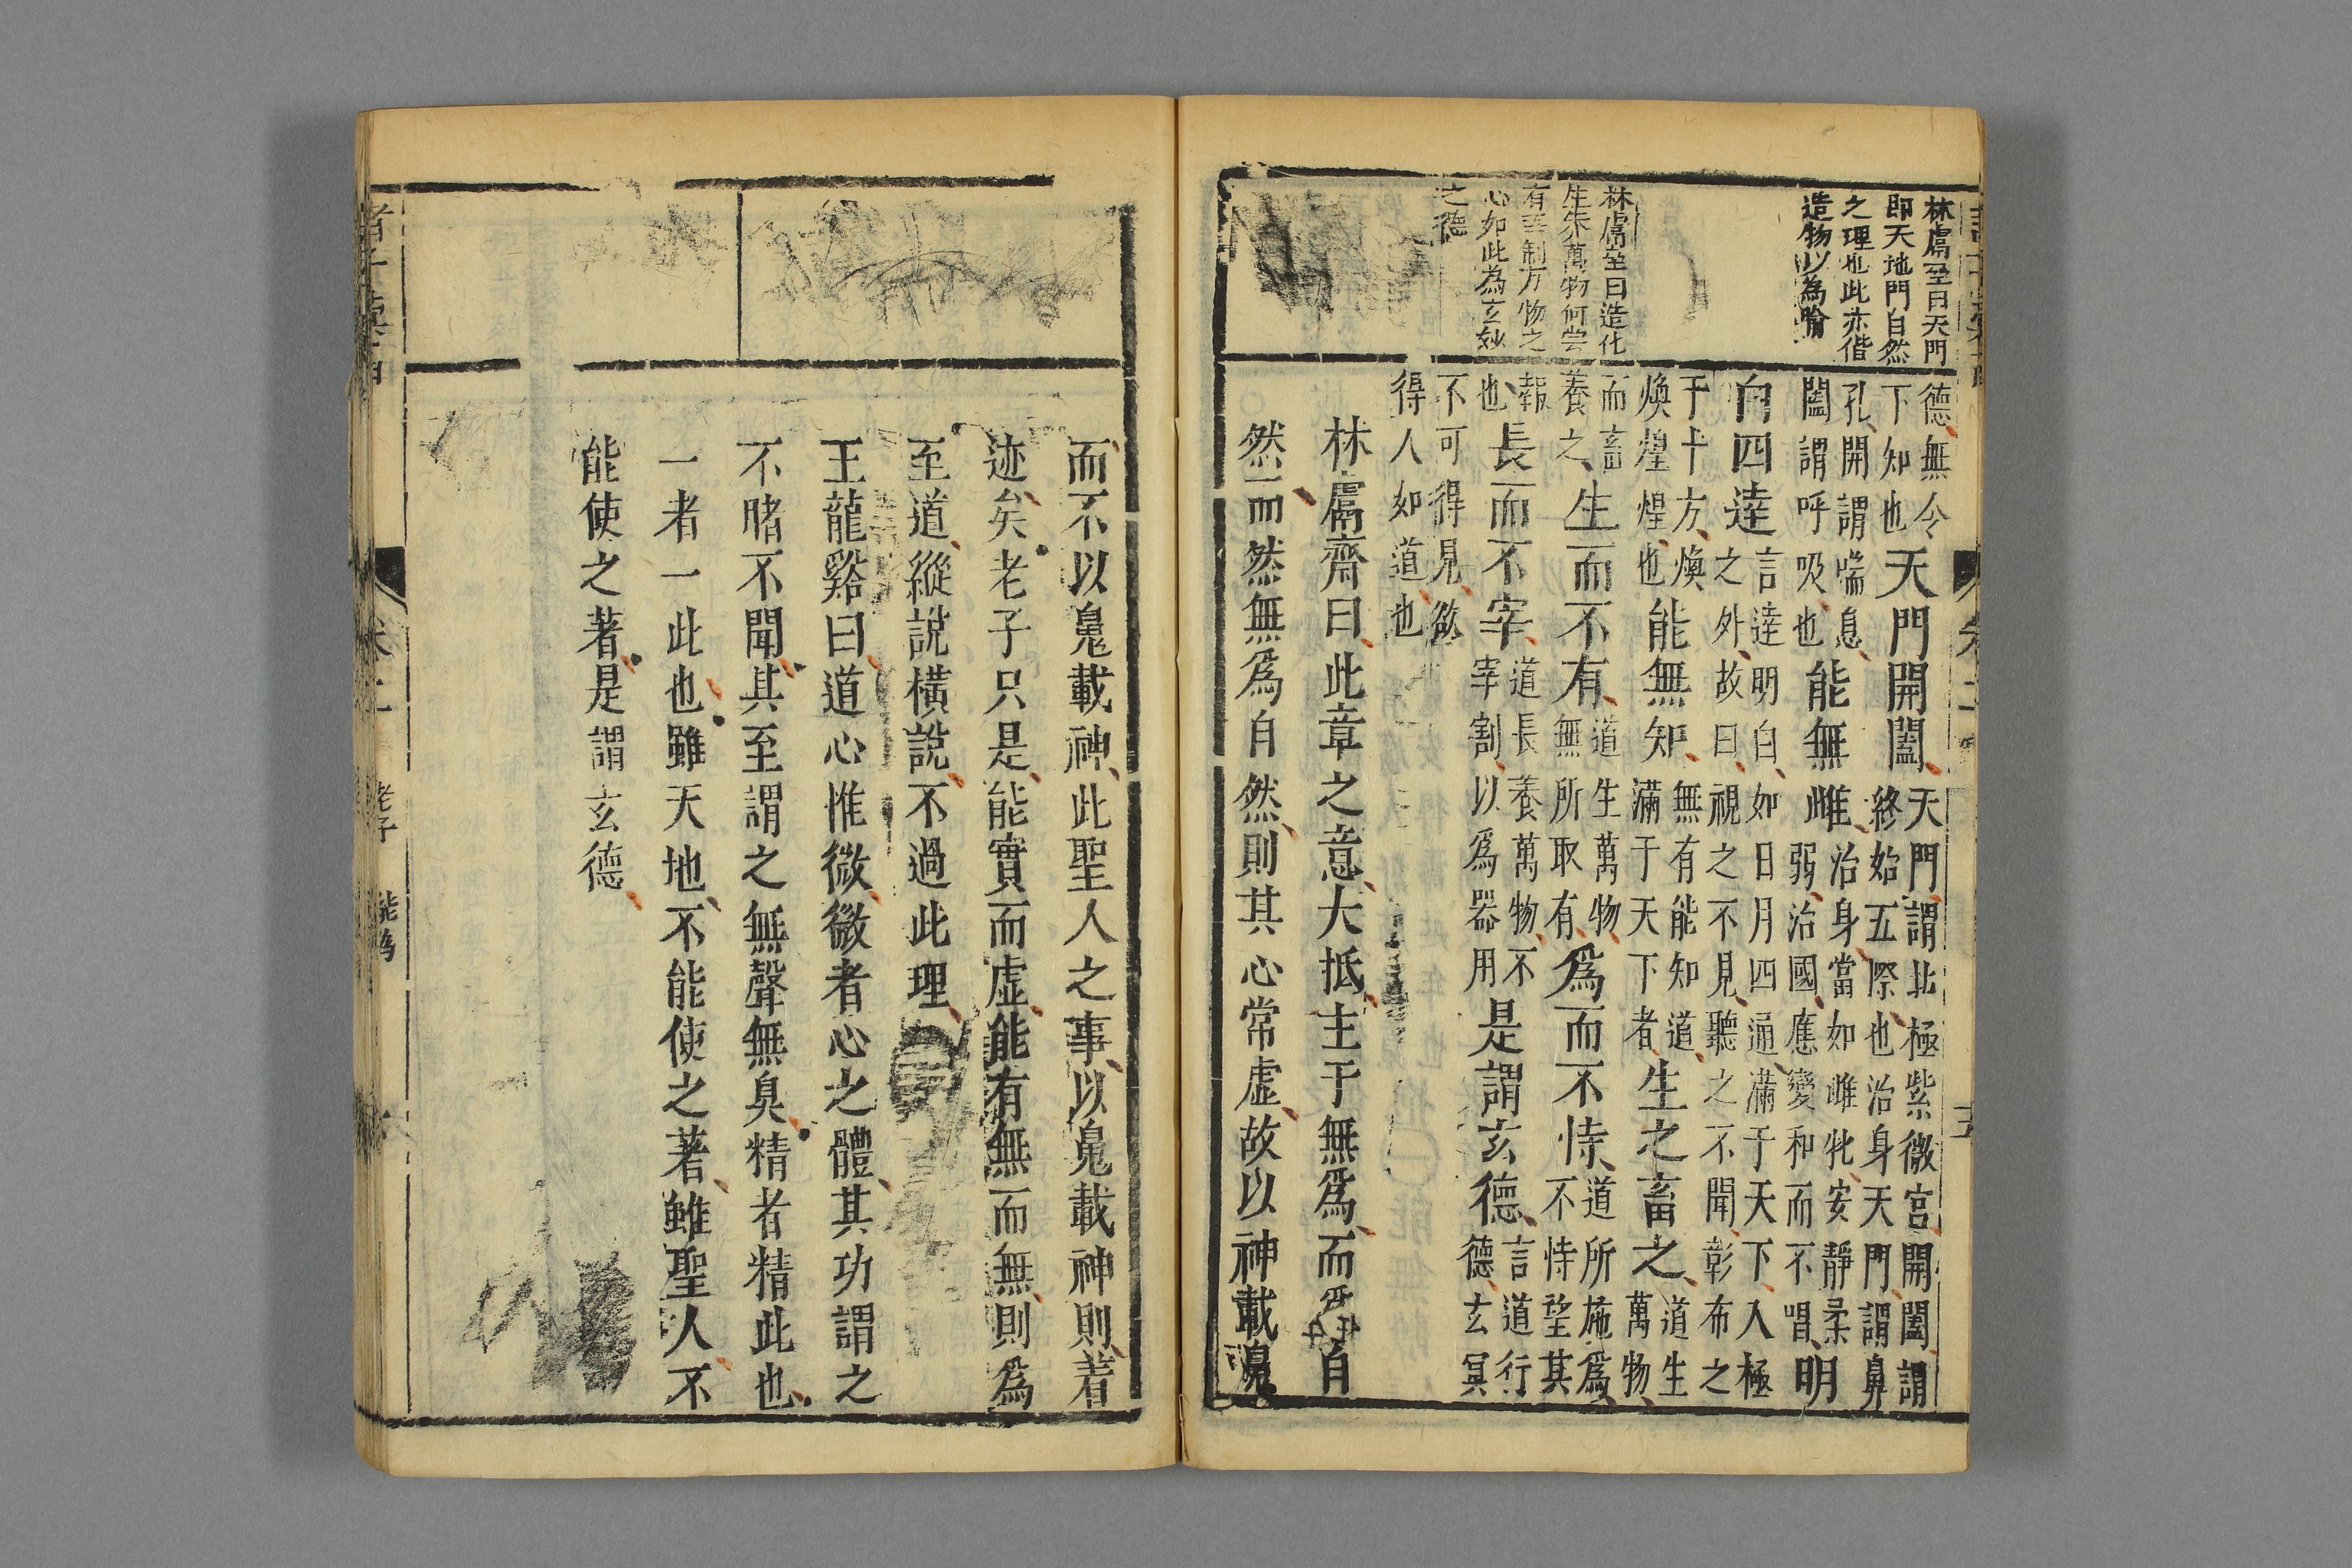 林鬳至曰天門
即天地門自然
之理也此亦借
造物以為喻
林鬳至曰造化
生朱萬物何嘗
有宰制万物之
心如此為玄妙
之德
德無令
下知也天門開闔天門謂北極紫微宮開闔謂
終始五際也治身天門謂鼻
孔開謂喘息
闔謂呼吸也能無雌治身當如雌牝安靜柔
弱治國應變和而不唱明
白四達言達明白如日月四通滿于天下入極
之外故曰視之不見聽之不聞彰布之
于十方煥
煥煌煌也能無知無有能知道
滿于天下者生之畜之道生
萬物
而畜
養之生而不有道生萬物
無所取有爲而不恃道所施爲
不恃望其
報
也長而不宰道長養萬物不
宰割以爲器用是謂玄德言道行
德玄冥
不可得見欲
得人如道也
林鬳齊曰此章之意大抵主于無爲而爲任自
然而然無爲自然則其心常虛故以神載鬼
而不以鬼載神此聖人之事以鬼載神則著
迹矣老子只是能實而虛能有無而無則爲
至道縱說橫說不過此理
王龍谿曰道心惟微微者心之體其功謂之
不睹不聞其至謂之無聲無臭精者精此也
一者一此也雖天地不能使之著雖聖人不
能使之著是謂玄德
卷二
老子
能爲